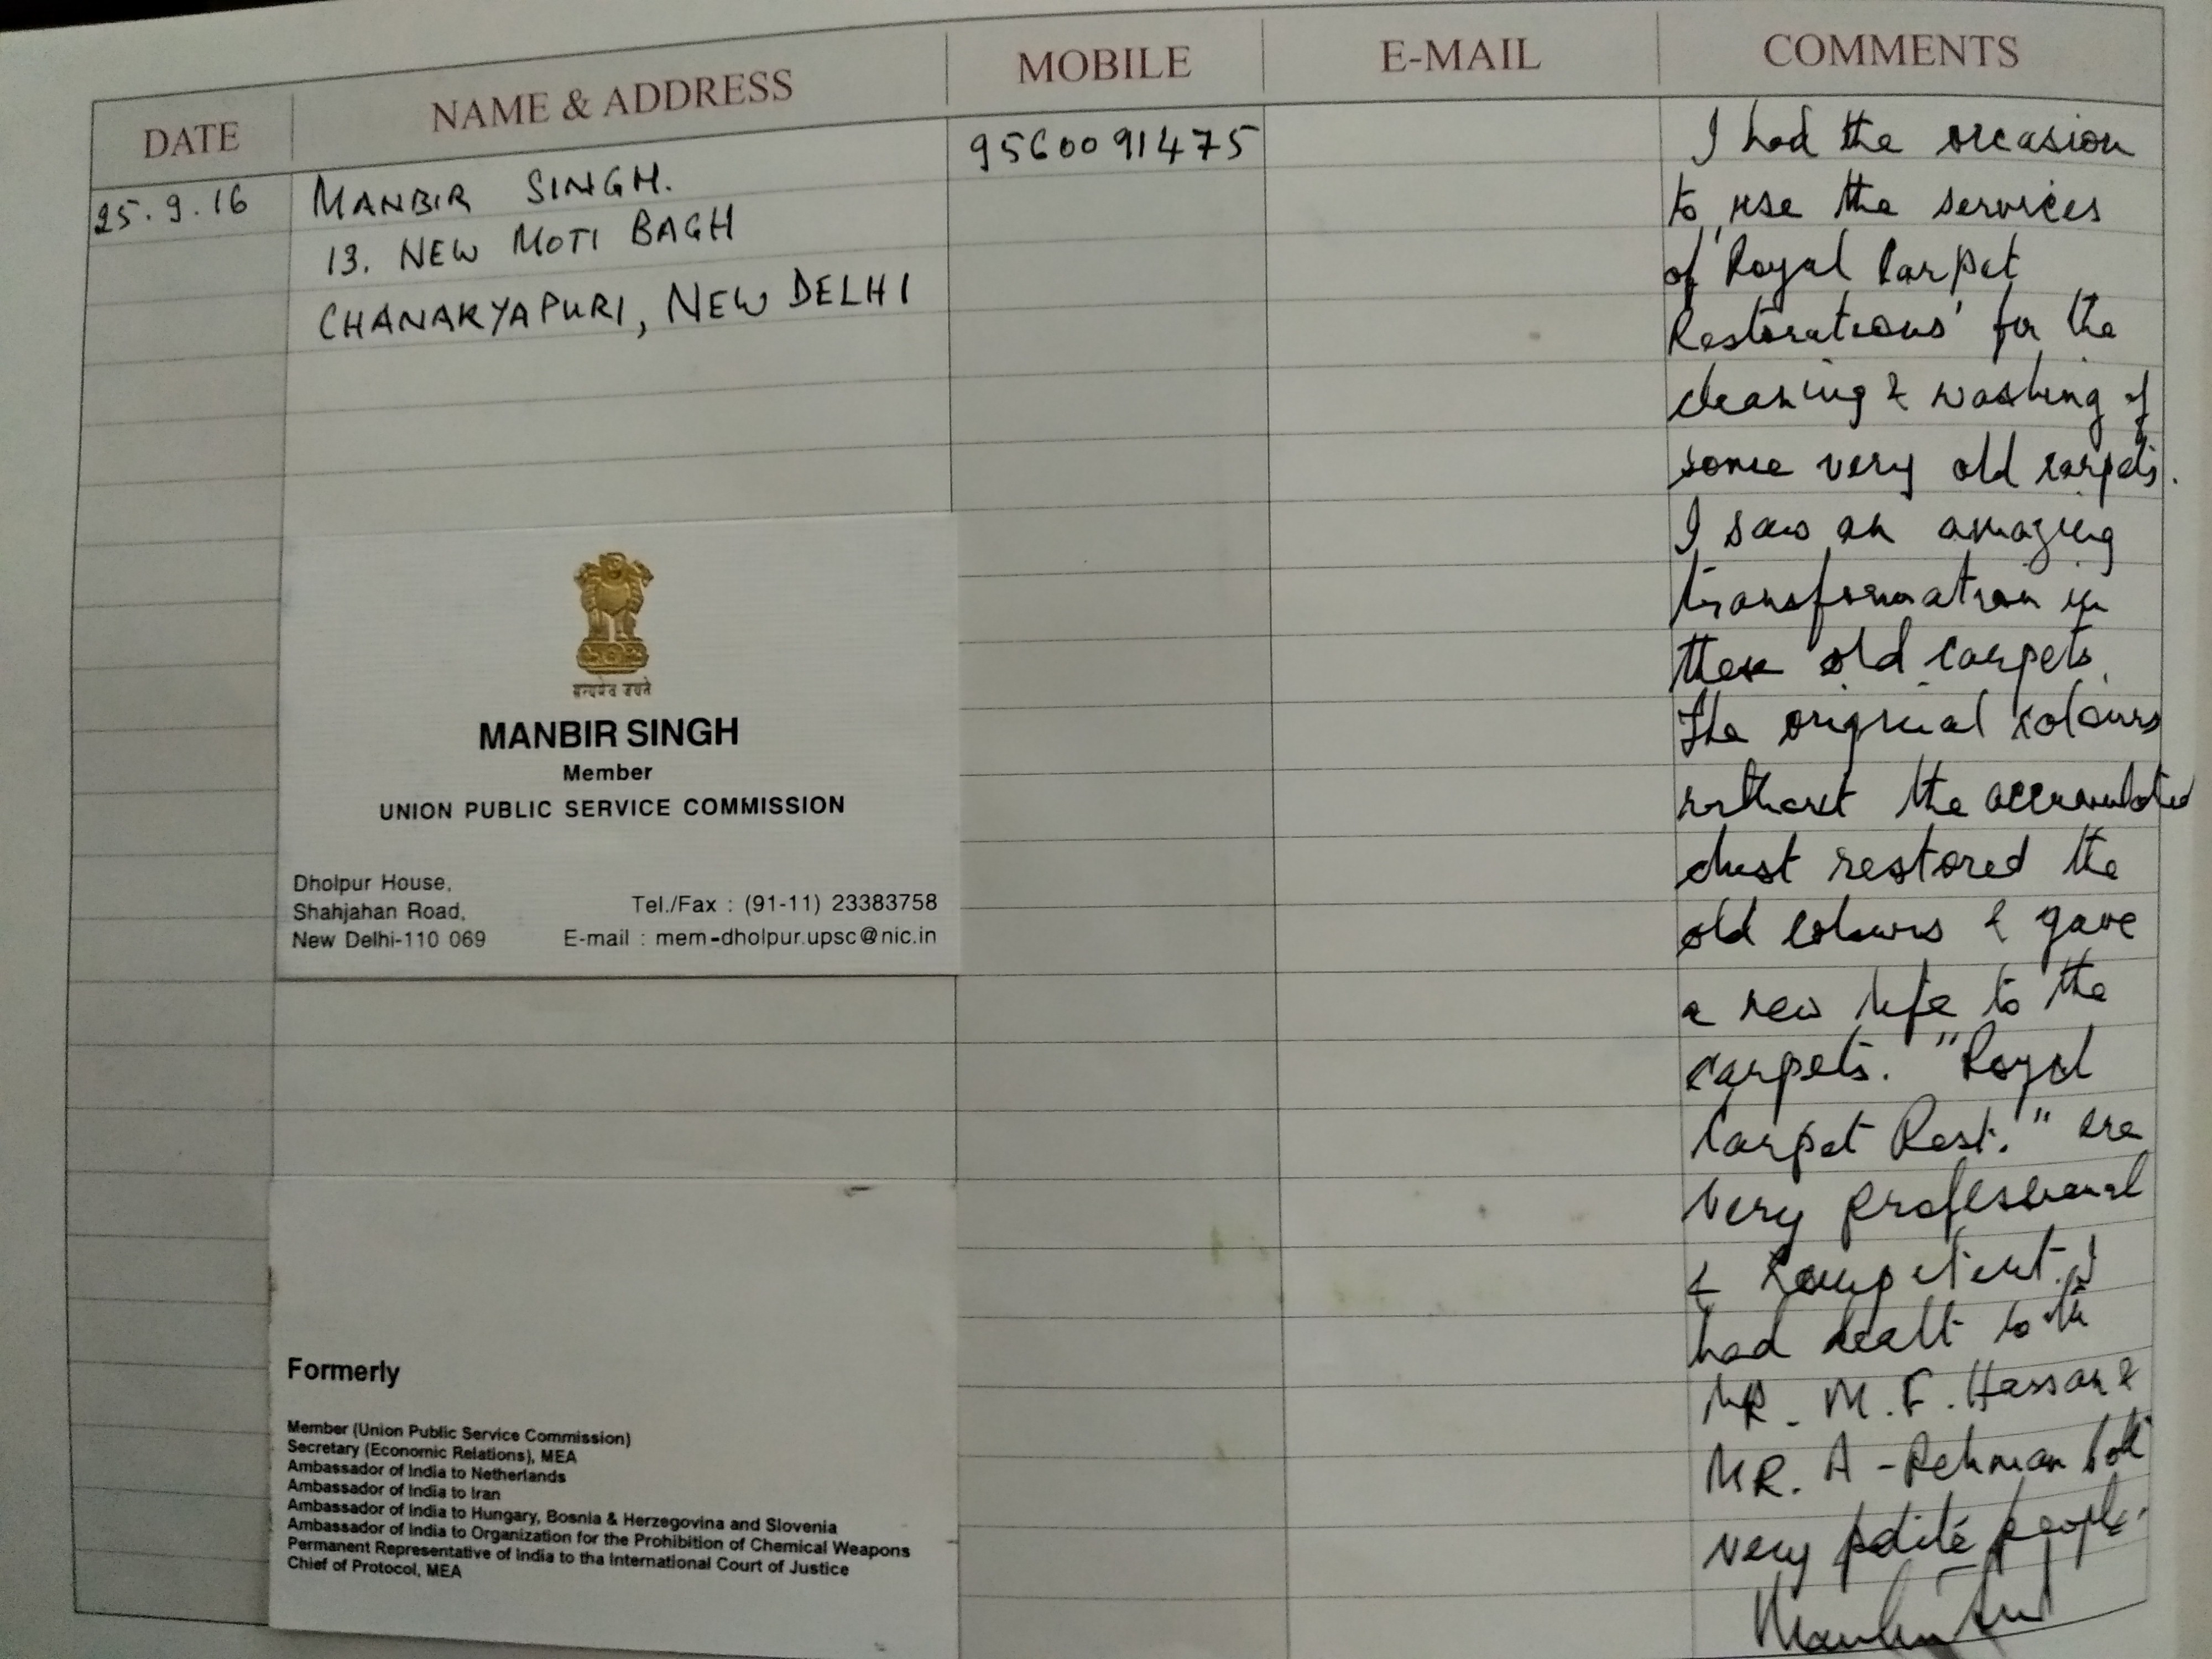 DATE
NAME & ADDRESS
MOBILE
E-MAIL
COMMENTS
25.9.16
MANBIR SINGH.
13. NEW MOTI BAGH
CHANAKYAPURI, NEW DELHI
9560091475
I had the occasion
to use the services
of 'Royal Carpet
Restorations' for the
cleaning & washing of
some very old carpets.
I saw an amazing
transformation in
these old carpets.
The original colours
without the accumulated
dust restored the
old colours & gave
a new life to the
carpets. "Royal
Carpet Rest." are
very professional
& competent. I
had dealt with
MR. M. F. Hassan &
MR. A - Rehman both
very polite people.
सत्यमेव जयते
MANBIR SINGH
Member
UNION PUBLIC SERVICE COMMISSION
Dholpur House,
Shahjahan Road,
New Delhi-110 069
Tel./Fax : (91-11) 23383758
E-mail : mem-dholpur.upsc@nic.in
Formerly
Member (Union Public Service Commission)
Secretary (Economic Relations), MEA
Ambassador of India to Netherlands
Ambassador of India to Iran
Ambassador of India to Hungary, Bosnia & Herzegovina and Slovenia
Ambassador of India to Organization for the Prohibition of Chemical Weapons
Permanent Representative of India to tha International Court of Justice
Chief of Protocol, MEA